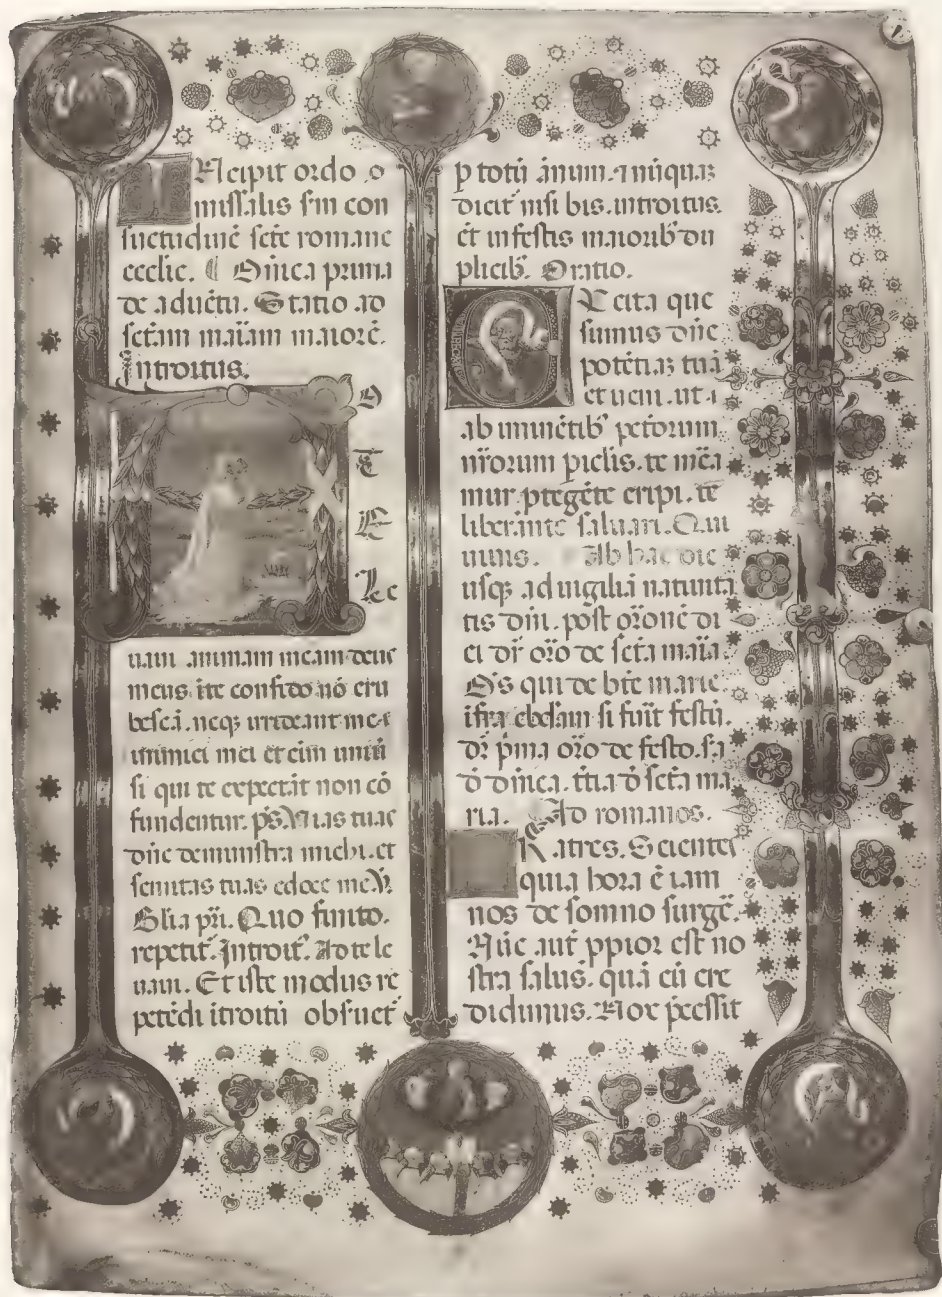 INcipit ordo
missalis s̄m con
suetudinē scte romane
ecclie. Dñica prima
de aduētu. Statio ad
sctam mariam maiorē.
Introitus.
AD
TE
LE
uaui animam meam deus
meus ī te confido nō eru
bescā. neqȝ irrideant me
inimici mei etēim uniū̄si
qui te expectāt non cō
fundentur. p̄s. Vias tuas
dñe demonstra michi. et
semitas tuas edoce me. V̄.
Gl̄ia pr̄i. Quo finito.
repetit̄. Introit̄. Ad te le
uaui. Et iste modus re
petēdi ītroitū obs̄uet̄
p totū ānum. ⁊ nūquaȝ
dicit̄ nisi bis. introitus.
et in festis maioribȝ du
plicibȝ. Oratio.
EXcita que
sumus dñe
potētiaȝ tuā
et ueni. ut
ab iminētibȝ petorum
nr̄orum piclis. te meā
mur ptegēte eripi. te
liberante saluari. Qui
uiuis. Ab hac die
usqȝ ad uigiliā natiuita
tis dn̄i. post or̄onē di
ei d̄r or̄o de scta maria
D̄s qui de bt̄e marie.
ifra ebd̄am si fuīt festū.
d̄r p̄ma or̄o de festo. s̄a
d̄ dn̄ica. t̄tia d̄ scta ma
ria. Ad romanos.
FRatres. Scientes
quia hora ē iam
nos de somno surgē.
Nūc aut̄ ppior est no
stra salus. quā cū cre
didimus. Nox p̄cessit